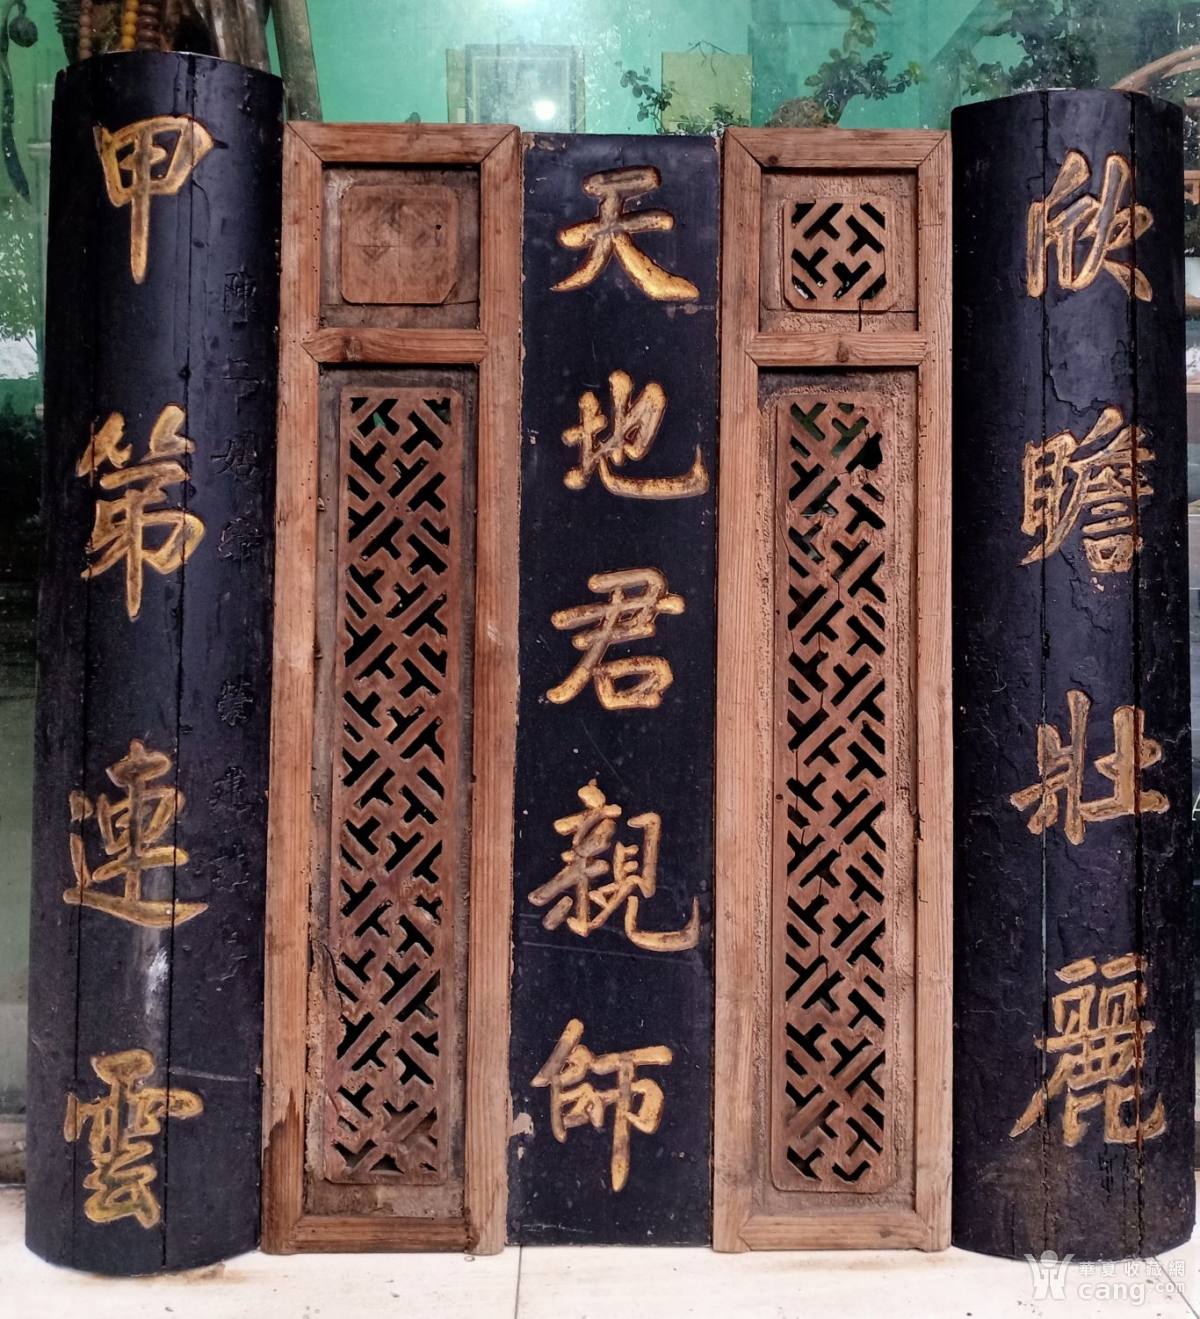 欣瞻壯麗
天地君親師
甲第連雲
華夏收藏網
cang.com